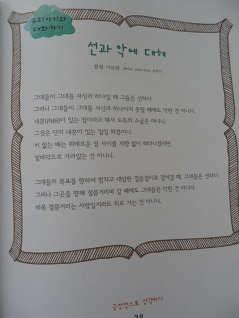 소리 이야기와
대화하기
선과 악에 대해
칼릴 지브란
그대들이 그대들 자신과 하나일 때 그들은 선하다.
그러나 그대들이 그대들 자신과 하나이지 못할 때에도 악한 건 아니다.
내분(內紛)이 있는 집이라고 해서 도둑의 소굴은 아니니.
그것은 단지 내분이 있는 집일 따름이니.
키 없는 배는 위태로운 섬 사이를 지향 없이 떠다니겠지만,
밑바닥으로 가라앉는 건 아니니.
그대들의 목표를 향하여 힘차고 대담한 걸음걸이로 걸어갈 때, 그대들은 선하다.
그러나 그곳을 향해 절름거리며 갈 때에도 그대들은 악한 건 아니다.
비록 절름거리는 사람일지라도 뒤로 가는 건 아니니.
긍정적으로 생각하기
39